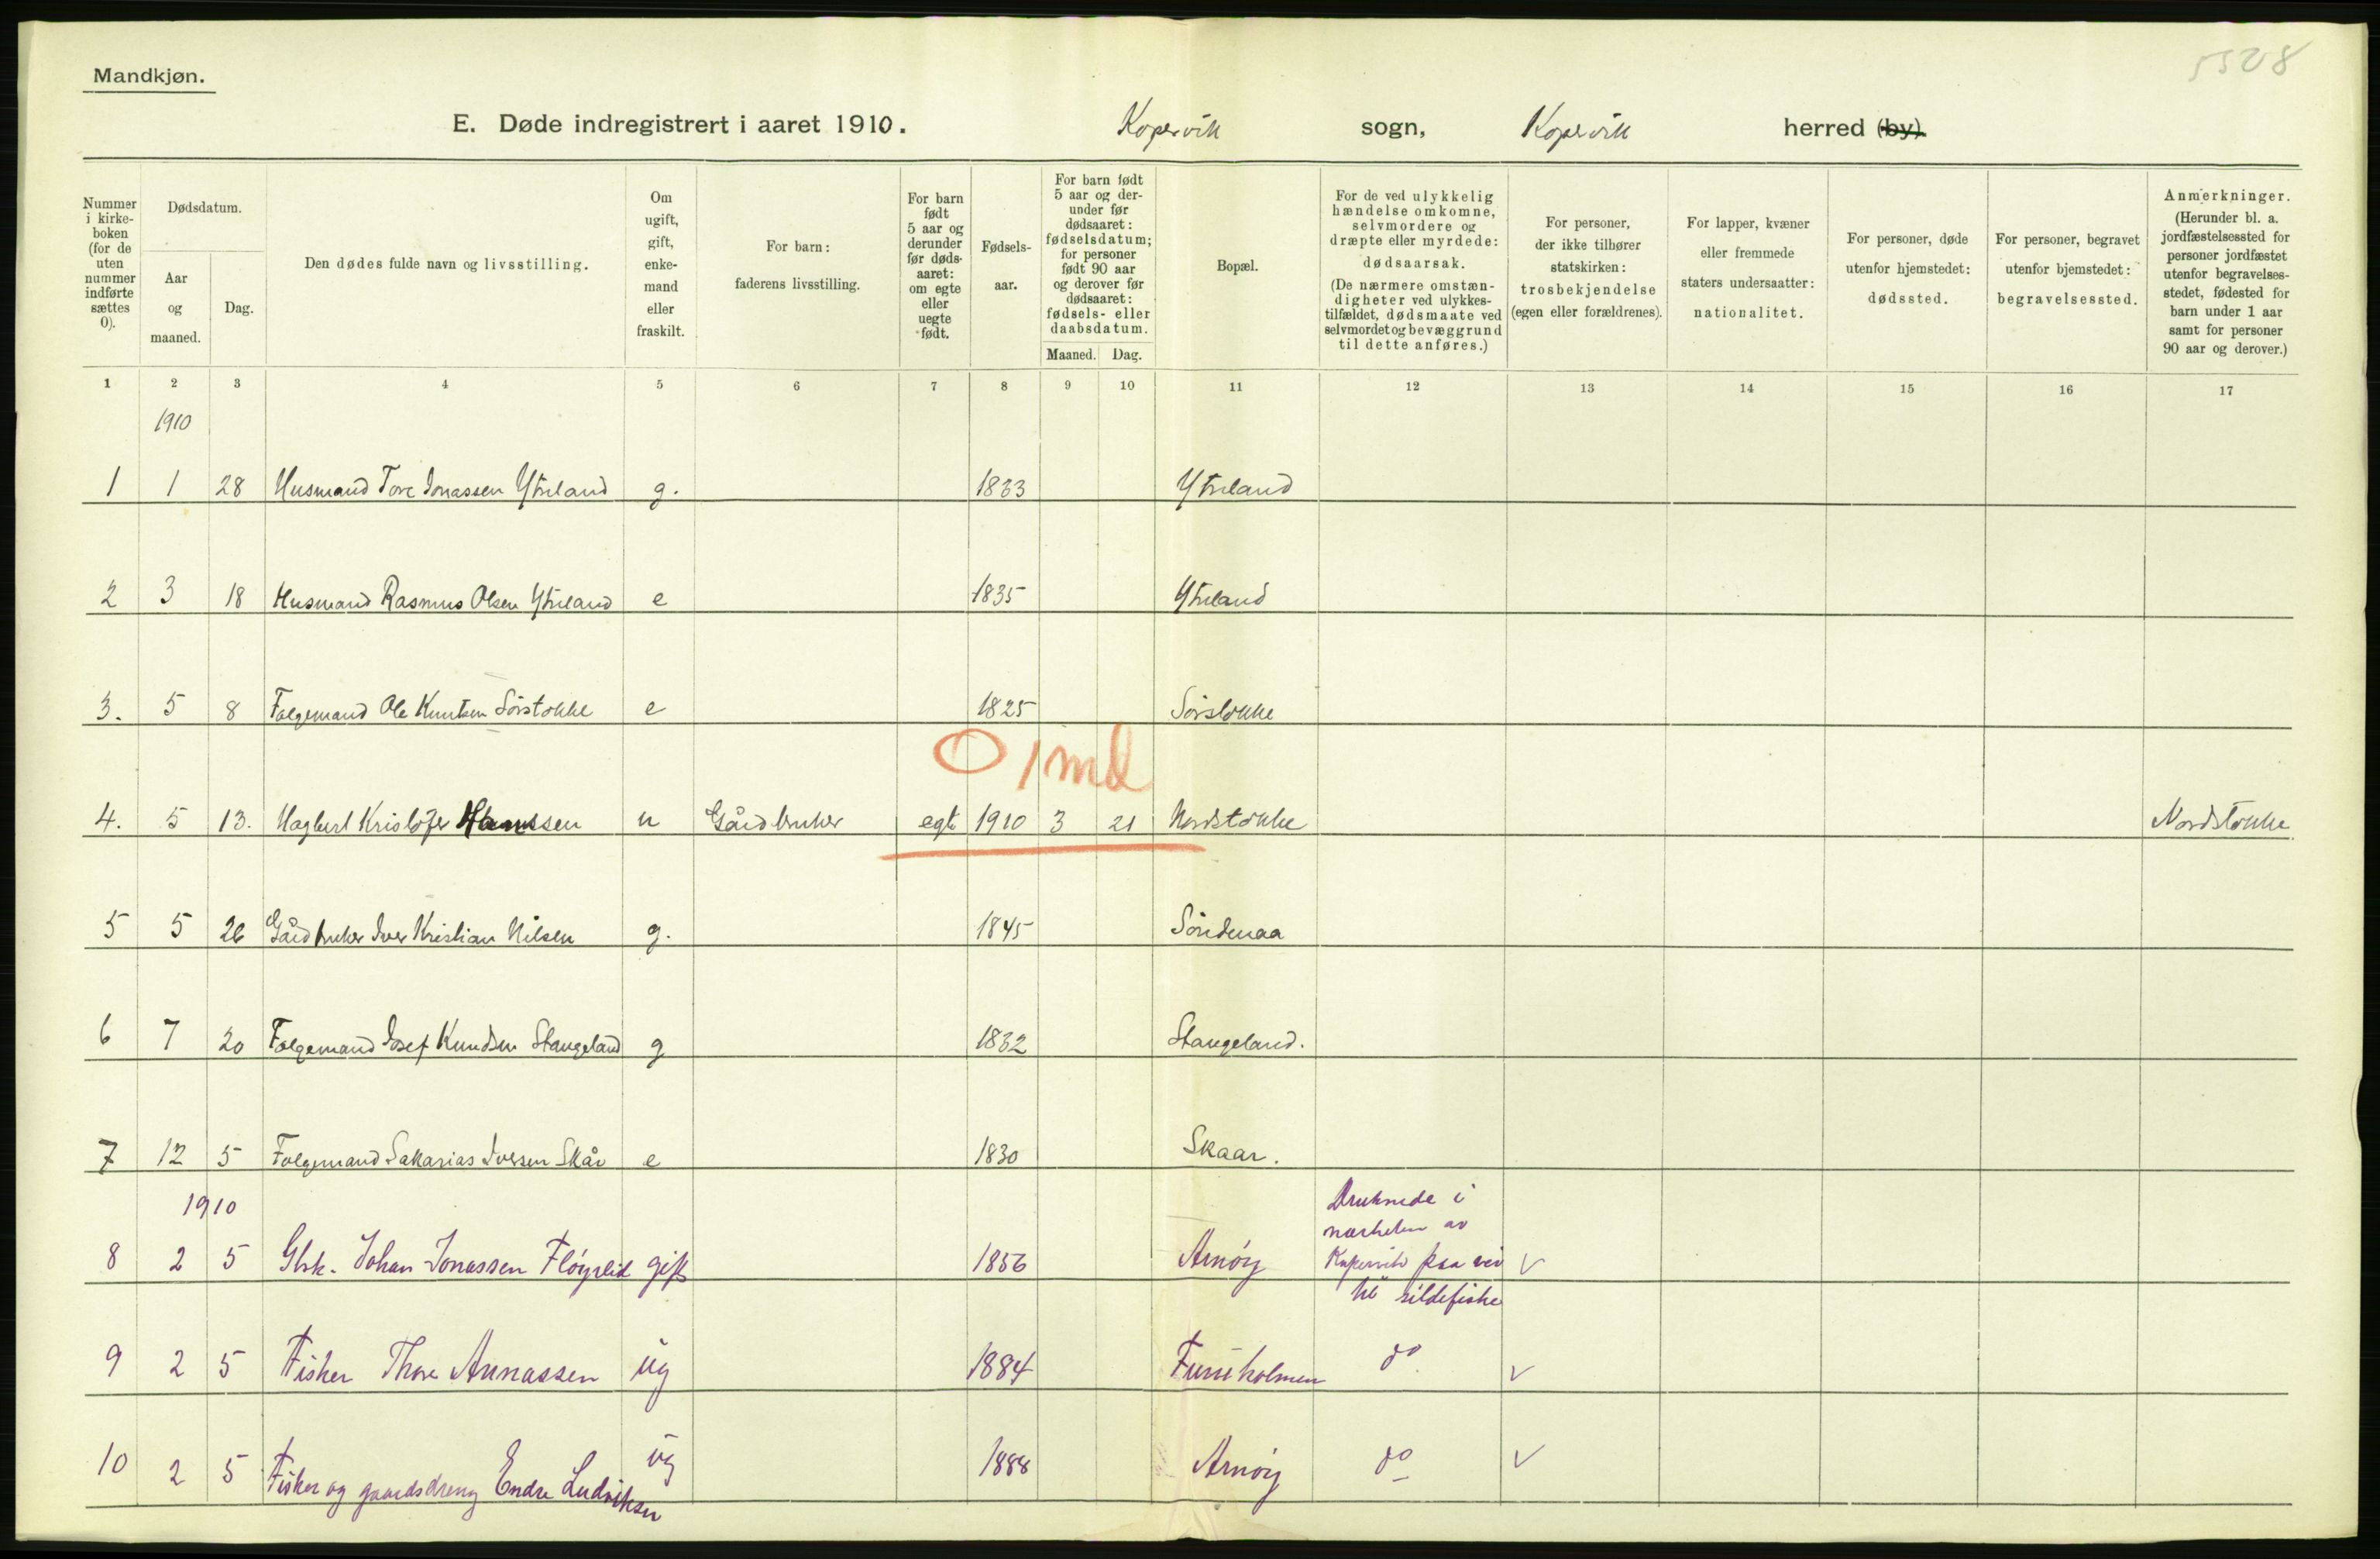 5528
Mandkjøn.
E. Døde indregistrert i aaret 1910. Kopervik sogn, Kopervik herred (by).
Nummer i kirke-boken (for de uten nummer indførte sættes 0).
Dødsdatum.
Aar og maaned.
Dag.
Den dødes fulde navn og livsstilling.
Om ugift, gift, enke-mand eller fraskilt.
For barn: faderens livsstilling.
For barn født 5 aar og derunder før døds-aaret: om egte eller uegte født.
Fødsels-aar.
For barn født 5 aar og der-under før dødsaaret: fødselsdatum; for personer født 90 aar og derover før dødsaaret: fødsels- eller daabsdatum.
Maaned. Dag.
Bopæl.
For de ved ulykkelig hændelse omkomne, selvmordere og dræpte eller myrdede: dødsaarsak. (De nærmere omstæn-digheter ved ulykkes-tilfældet, dødsmaate ved selvmordet og bevæggrund til dette anføres.)
For personer, der ikke tilhører statskirken: trosbekjendelse (egen eller forældrenes).
For lapper, kvæner eller fremmede staters undersaatter: nationalitet.
For personer, døde utenfor hjemstedet: dødssted.
For personer, begravet utenfor hjemstedet: begravelsessted.
Anmerkninger. (Herunder bl. a. jordfæstelsessted for personer jordfæstet utenfor begravelses-stedet, fødested for barn under 1 aar samt for personer 90 aar og derover.)
1 2 3 4 5 6 7 8 9 10 11 12 13 14 15 16 17
1910
1 1 28 Husmand Tore Jonassen Ytreland g. 1833 Ytreland
2 3 18 Husmand Rasmus Olsen Ytreland e 1835 Ytreland
3. 5 8 Folgemand Ole Knutsen Sørstokke e 1825 Sørstokke
0 1 md
4. 5 13. Hagbert Kristofer Hanssen u Gårdbruker egte 1910 3 21 Nordstokke Nordstokke
5 5 26 Gårdbruker Iver Kristian Nilsen g. 1845 Søndenaa
6 7 20 Folgemand Josef Knudsen Stangeland g 1832 Stangeland.
7 12 5 Folgemand Sakarias Iversen Skår e 1830 Skaar.
1910
8 2 5 Gbk. Johan Jonassen Fløyrlid gift 1856 Arnøy Druknede i nærheten av Kopervik paa vei til sildefiske v
9 2 5 Fisker Thore Annassen ug 1884 Furreholmen do v
10 2 5 Fisker og gaardsdreng Endre Ludviksen ug 1888 Arnøy do v